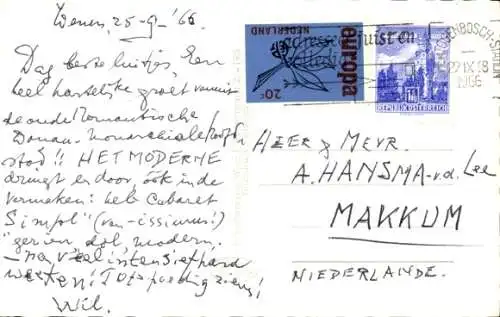 Wenen, 25-9-'66
Dag beste luitjes, Een
heel hartelijke groet vanuit
de oude Romantische
Donau-Monarchiale hoofd-
stad!! HET MODERNE
dringt er door, óók in de
vermaken: heb Cabaret
Simpl" (van-issimus!)
"gezien, dol, modern.
- na veel intensief hard
werken! Tot spoedig ziens!
Wil.
europa
NEDERLAND
20c
adresseer juist en
volledig
REPUBLIK ÖSTERREICH
ENBOSCH-STATION
27.IX.18
1966
HEER & MEVR.
A. HANSMA-v.d. Lee
MAKKUM
NIEDERLANDE.